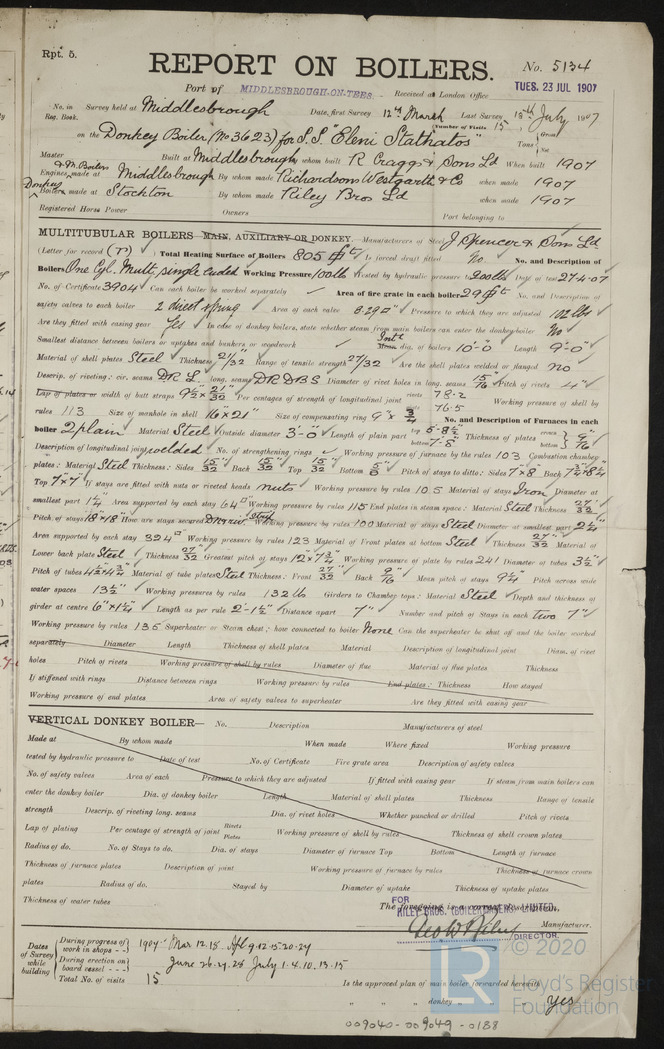 Rpt. 5.
REPORT ON BOILERS.
No. 5134
Port of MIDDLESBROUGH-ON-TEES Received at London Office TUES. 23 JUL 1907
No. in Survey held at Middlesbrough Date, first Survey 12th March Last Survey 15th July 1907
Reg. Book. (Number of Visits 15)
on the Donkey Boiler (No 3623) for S.S. "Eleni Stathatos" Tons { Gross Net
Master Built at Middlesbrough By whom built R Craggs & Sons Ld When built 1907
Engines & M. Boilers made at Middlesbrough By whom made Richardsons Westgarth & Co when made 1907
Donkey Boilers made at Stockton By whom made Riley Bros Ld when made 1907
Registered Horse Power Owners Port belonging to
MULTITUBULAR BOILERS MAIN, AUXILIARY OR DONKEY.—Manufacturers of Steel J Spencer & Sons Ld
(Letter for record (r)) Total Heating Surface of Boilers 805 sq ft Is forced draft fitted No. No. and Description of
Boilers One Cyl. Mult. single ended Working Pressure 100 lbs Tested by hydraulic pressure to 200 lbs Date of test 27.4.07
No. of Certificate 3904 Can each boiler be worked separately Area of fire grate in each boiler 29 sq ft No. and Description of
safety valves to each boiler 2 direct spring Area of each valve 8.29□" Pressure to which they are adjusted 102 lbs
Are they fitted with easing gear Yes In case of donkey boilers, state whether steam from main boilers can enter the donkey boiler No
Smallest distance between boilers or uptakes and bunkers or woodwork Intl Mean dia. of boilers 10'-0" Length 9'-0"
Material of shell plates Steel Thickness 21/32 Range of tensile strength 27/32 Are the shell plates welded or flanged no
Descrip. of riveting: cir. seams DR L. long. seams DR DBS Diameter of rivet holes in long. seams 15/16 Pitch of rivets 4"
Lap of plates or width of butt straps 9½ x 21/32 Per centages of strength of longitudinal joint rivets 78.2 plate 76.5 Working pressure of shell by
rules 113 Size of manhole in shell 16" x 21" Size of compensating ring 9" x 3/4 No. and Description of Furnaces in each
boiler 2 plain Material Steel Outside diameter 3'-0" Length of plain part top 5-8½" bottom 7'-5" Thickness of plates crown bottom } 9/16
Description of longitudinal joint welded No. of strengthening rings Working pressure of furnace by the rules 103 Combustion chamber
plates: Material Steel Thickness: Sides 15/32 Back 15/32 Top 15/32 Bottom 5/8 Pitch of stays to ditto: Sides 7" x 8" Back 7¾ x 8¼
Top 7" x 7" If stays are fitted with nuts or riveted heads nuts Working pressure by rules 105 Material of stays Iron Diameter at
smallest part 1¼ Area supported by each stay 64□" Working pressure by rules 115 End plates in steam space: Material Steel Thickness 27/32
Pitch of stays 18" x 18" How are stays secured Working pressure by rules 100 Material of stays Steel Diameter at smallest part 2¼"
Area supported by each stay 324□" Working pressure by rules 123 Material of Front plates at bottom Steel Thickness 27/32 Material of
Lower back plate Steel Thickness 27/32 Greatest pitch of stays 12" x 7¾ Working pressure of plate by rules 241 Diameter of tubes 3½"
Pitch of tubes 4½ x 4¾ Material of tube plates Steel Thickness: Front 27/32 Back 9/16 Mean pitch of stays 9¼" Pitch across wide
water spaces 13½" Working pressures by rules 132 lb Girders to Chamber tops: Material Steel Depth and thickness of
girder at centre 6" x 1¼" Length as per rule 2'-1½" Distance apart 7" Number and pitch of Stays in each two 7"
Working pressure by rules 135 Superheater or Steam chest; how connected to boiler None Can the superheater be shut off and the boiler worked
separately Diameter Length Thickness of shell plates Material Description of longitudinal joint Diam. of rivet
holes Pitch of rivets Working pressure of shell by rules Diameter of flue Material of flue plates Thickness
If stiffened with rings Distance between rings Working pressure by rules End plates: Thickness How stayed
Working pressure of end plates Area of safety valves to superheater Are they fitted with easing gear
VERTICAL DONKEY BOILER— No. Description Manufacturers of steel
Made at By whom made When made Where fixed Working pressure
tested by hydraulic pressure to Date of test No. of Certificate Fire grate area Description of safety valves
No. of safety valves Area of each Pressure to which they are adjusted If fitted with easing gear If steam from main boilers can
enter the donkey boiler Dia. of donkey boiler Length Material of shell plates Thickness Range of tensile
strength Descrip. of riveting long. seams Dia. of rivet holes Whether punched or drilled Pitch of rivets
Lap of plating Per centage of strength of joint Rivets Plates Working pressure of shell by rules Thickness of shell crown plates
Radius of do. No. of Stays to do. Dia. of stays Diameter of furnace Top Bottom Length of furnace
Thickness of furnace plates Description of joint Working pressure of furnace by rules Thickness of furnace crown
plates Radius of do. Stayed by Diameter of uptake Thickness of uptake plates
Thickness of water tubes
FOR The foregoing is a correct description,
RILEY BROS. (BOILERMAKERS) LIMITED.
Geo W Riley Manufacturer.
DIRECTOR.
Dates of Survey while building
During progress of work in shops - - } 1907: Mar 12.18 Apl 9.12.15.20.24
During erection on board vessel - - - } June 26.27.28 July 1.4.10.13.15
Total No. of visits 15 Is the approved plan of main boiler forwarded herewith
" " " donkey " " " Yes
009040-009049-0188
© 2020
LR
Lloyd's Register
Foundation